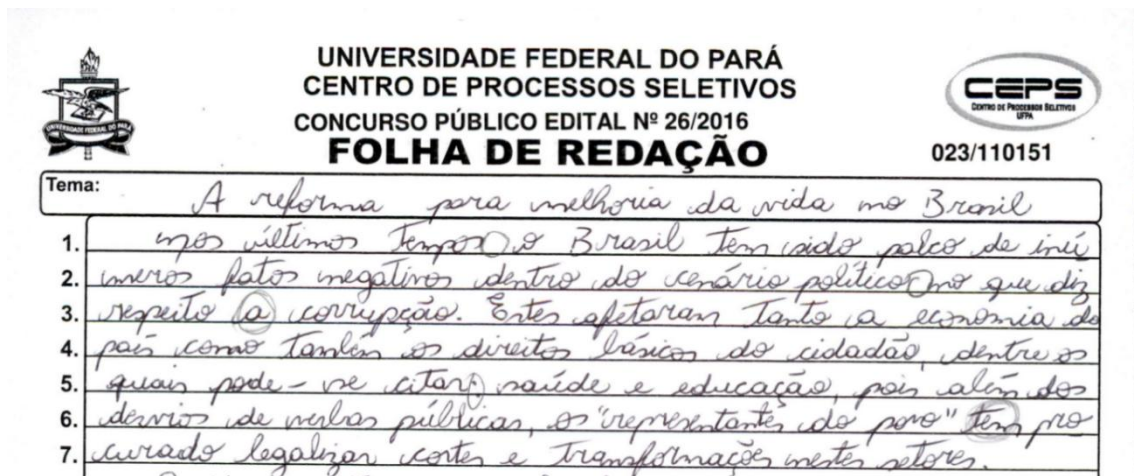 UNIVERSIDADE FEDERAL DO PARÁ
CENTRO DE PROCESSOS SELETIVOS
CONCURSO PÚBLICO EDITAL Nº 26/2016
FOLHA DE REDAÇÃO
UNIVERSIDADE FEDERAL DO PARÁ
CEPS
CENTRO DE PROCESSOS SELETIVOS
UFPA
023/110151
Tema: A reforma para melhoria da vida no Brasil
1. nos últimos tempos o Brasil tem sido palco de inú
2. meros fatos negativos dentro do cenário político no que diz
3. respeito a corrupção. Estes afetaram tanto a economia do
4. país como também os direitos básicos do cidadão, dentre os
5. quais pode-se citar saúde e educação, pois além dos
6. desvios de verbas públicas, os "representantes do povo" tem pro
7. curado legalizar cortes e transformações nestes setores.